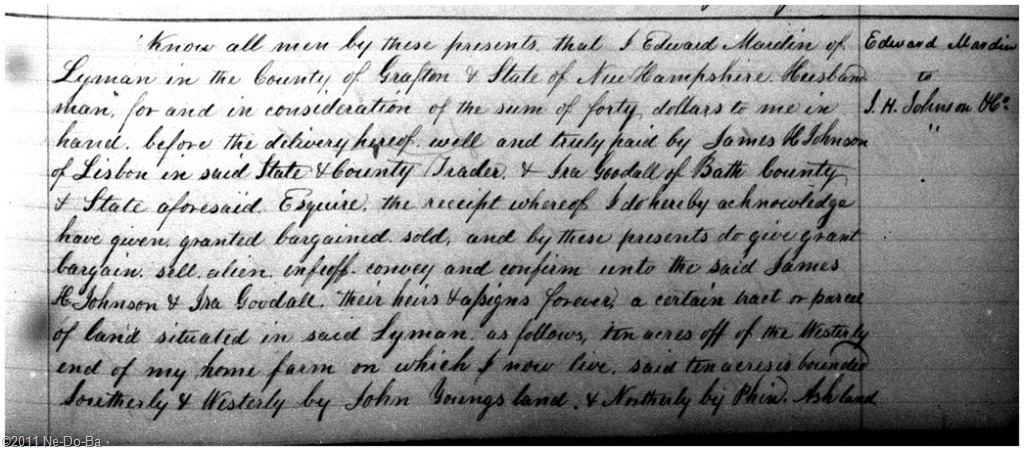 Know all men by these presents that I Edward Mardin of
Lyman in the County of Grafton & State of New Hampshire. Husband
man, for and in consideration of the sum of forty dollars to me in
hand. before the delivery hereof. well and truly paid by James H Johnson
of Lisbon in said State & County Trader, & Ira Goodall of Bath County
& State aforesaid. Esquire. the receipt whereof I do hereby acknowledge
have given, granted bargained. sold, and by these presents do give grant
bargain. sell. alien. enfeoff. convey and confirm unto the said James
H. Johnson & Ira Goodall. their heirs & assigns forever, a certain tract or parcel
of land situated in said Lyman. as follows, ten acres off of the Westerly
end of my home farm on which I now live. said ten acres is bounded
Southerly & Westerly by John Youngs land. & Northerly by Phin. Ash land.
Edward Mardin
to
J. H. Johnson & Co.
"
©2011 Ne-Do-Ba